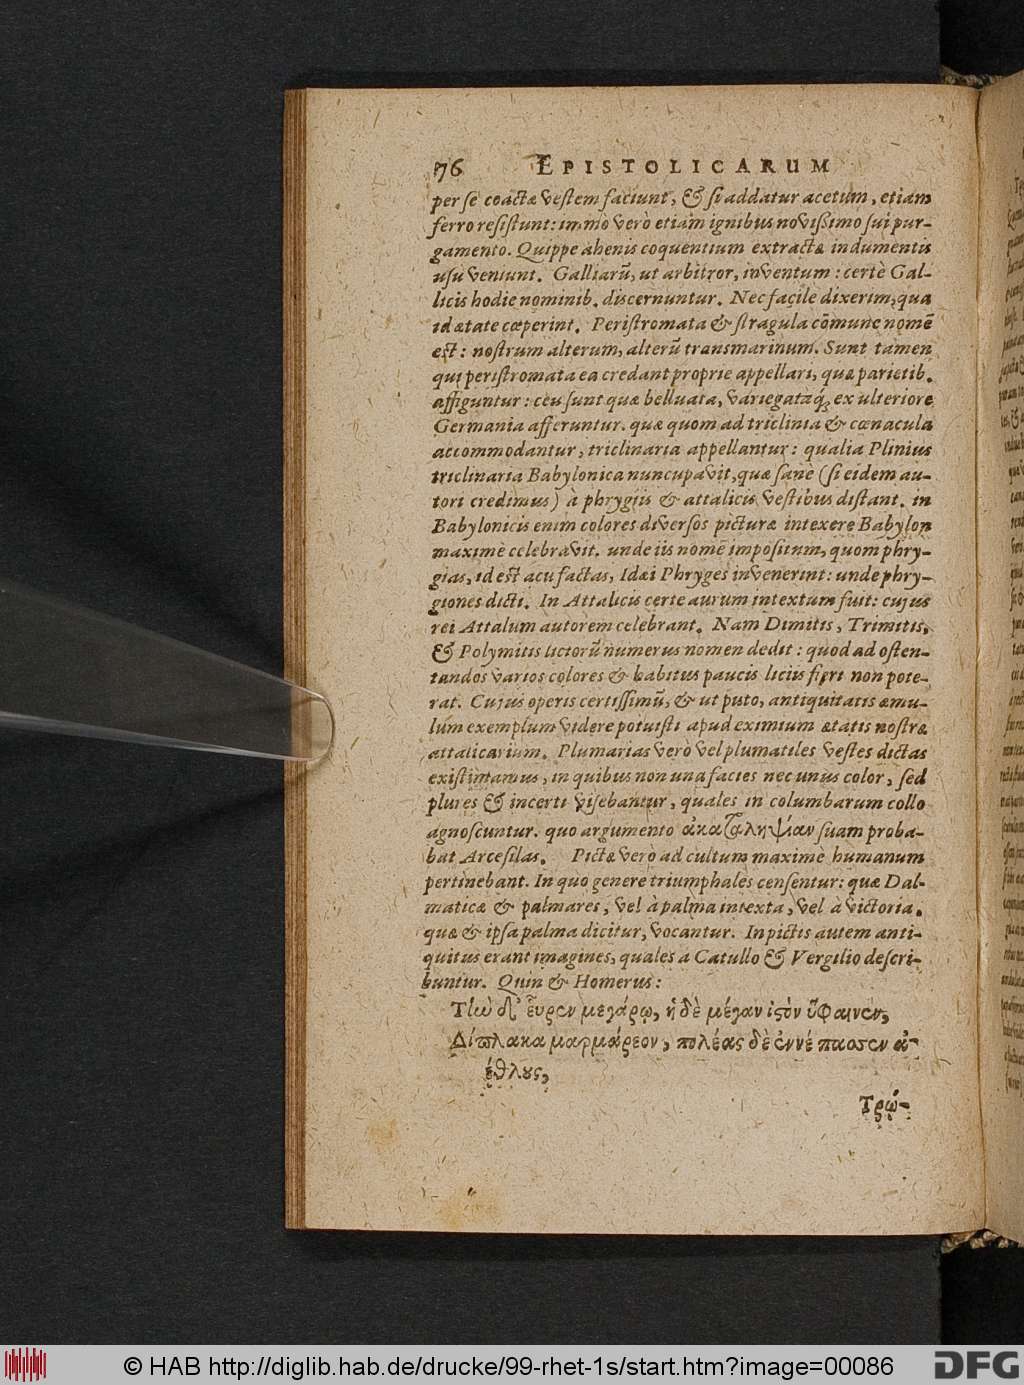 76 EPISTOLICARUM
per se coactæ vestem faciunt, & si addatur acetum, etiam
ferro resistunt: immo verò etiam ignibus novissimo sui pur-
gamento. Quippe ahenis coquentium extracta indumentis
usu veniunt. Galliarū, ut arbitror, inventum: certè Gal-
licis hodie nominib. discernuntur. Nec facile dixerim, qua
id ætate cœperint. Peristromata & stragula cōmune nomē
est: nostrum alterum, alterū transmarinum. Sunt tamen
qui peristromata ea credant proprie appellari, quæ parietib.
affiguntur: ceu sunt quæ belluata, variegataq́; ex ulteriore
Germania afferuntur. quæ quom ad triclinia & cœnacula
accommodantur, triclinaria appellantur: qualia Plinius
triclinaria Babylonica nuncupavit, quæ sanè (si eidem au-
tori credimus) à phrygiis & attalicis vestibus distant. in
Babylonicis enim colores diversos picturæ intexere Babylon
maximè celebravit. unde iis nomē impositum, quom phry-
gias, id est acu factas, Idæi Phryges invenerint: unde phry-
giones dicti. In Attalicis certe aurum intextum fuit: cujus
rei Attalum autorem celebrant. Nam Dimitis, Trimitis,
& Polymitis liciorū numerus nomen dedit: quod ad osten-
tandos varios colores & habitus paucis liciis fieri non pote-
rat. Cujus operis certissimū, & ut puto, antiquitatis æmu-
lum exemplum videre potuisti apud eximium ætatis nostræ
attalicarium. Plumarias verò vel plumatiles vestes dictas
existimamus, in quibus non una facies nec unus color, sed
plures & incerti visebantur, quales in columbarum collo
agnoscuntur. quo argumento ἀκαταληψίαν suam proba-
bat Arcesilas. Pictæ verò ad cultum maximè humanum
pertinebant. In quo genere triumphales censentur: quæ Dal-
maticæ & palmares, vel à palma intexta, vel à victoria.
quæ & ipsa palma dicitur, vocantur. In pictis autem anti-
quitus erant imagines, quales a Catullo & Vergilio descri-
buntur. Quin & Homerus:
Τίω δ' εὗρεν μεγάρῳ, ἡ δὲ μέγαν ἱστὸν ὕφαινεν,
Δίπλακα μαρμάρεον, πολέας δὲ ἐννέπασσεν ἀ-
έθλους,
Τρώ-
© HAB http://diglib.hab.de/drucke/99-rhet-1s/start.htm?image=00086
DFG